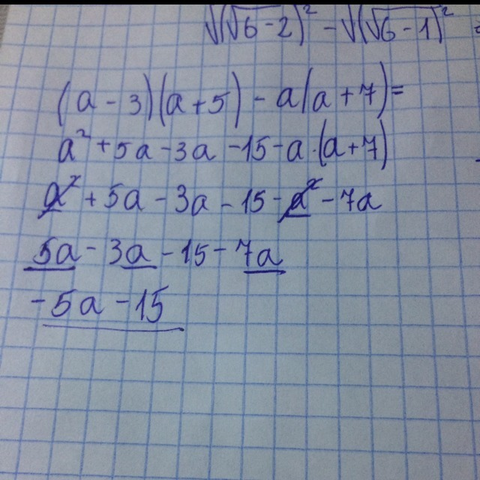 √(√6-2)² - √(√6-1)² =
(a-3)(a+5) - a(a+7)=
a²+5a-3a-15-a·(a+7)
a²+5a-3a-15-a²-7a
5a-3a-15-7a
-5a-15